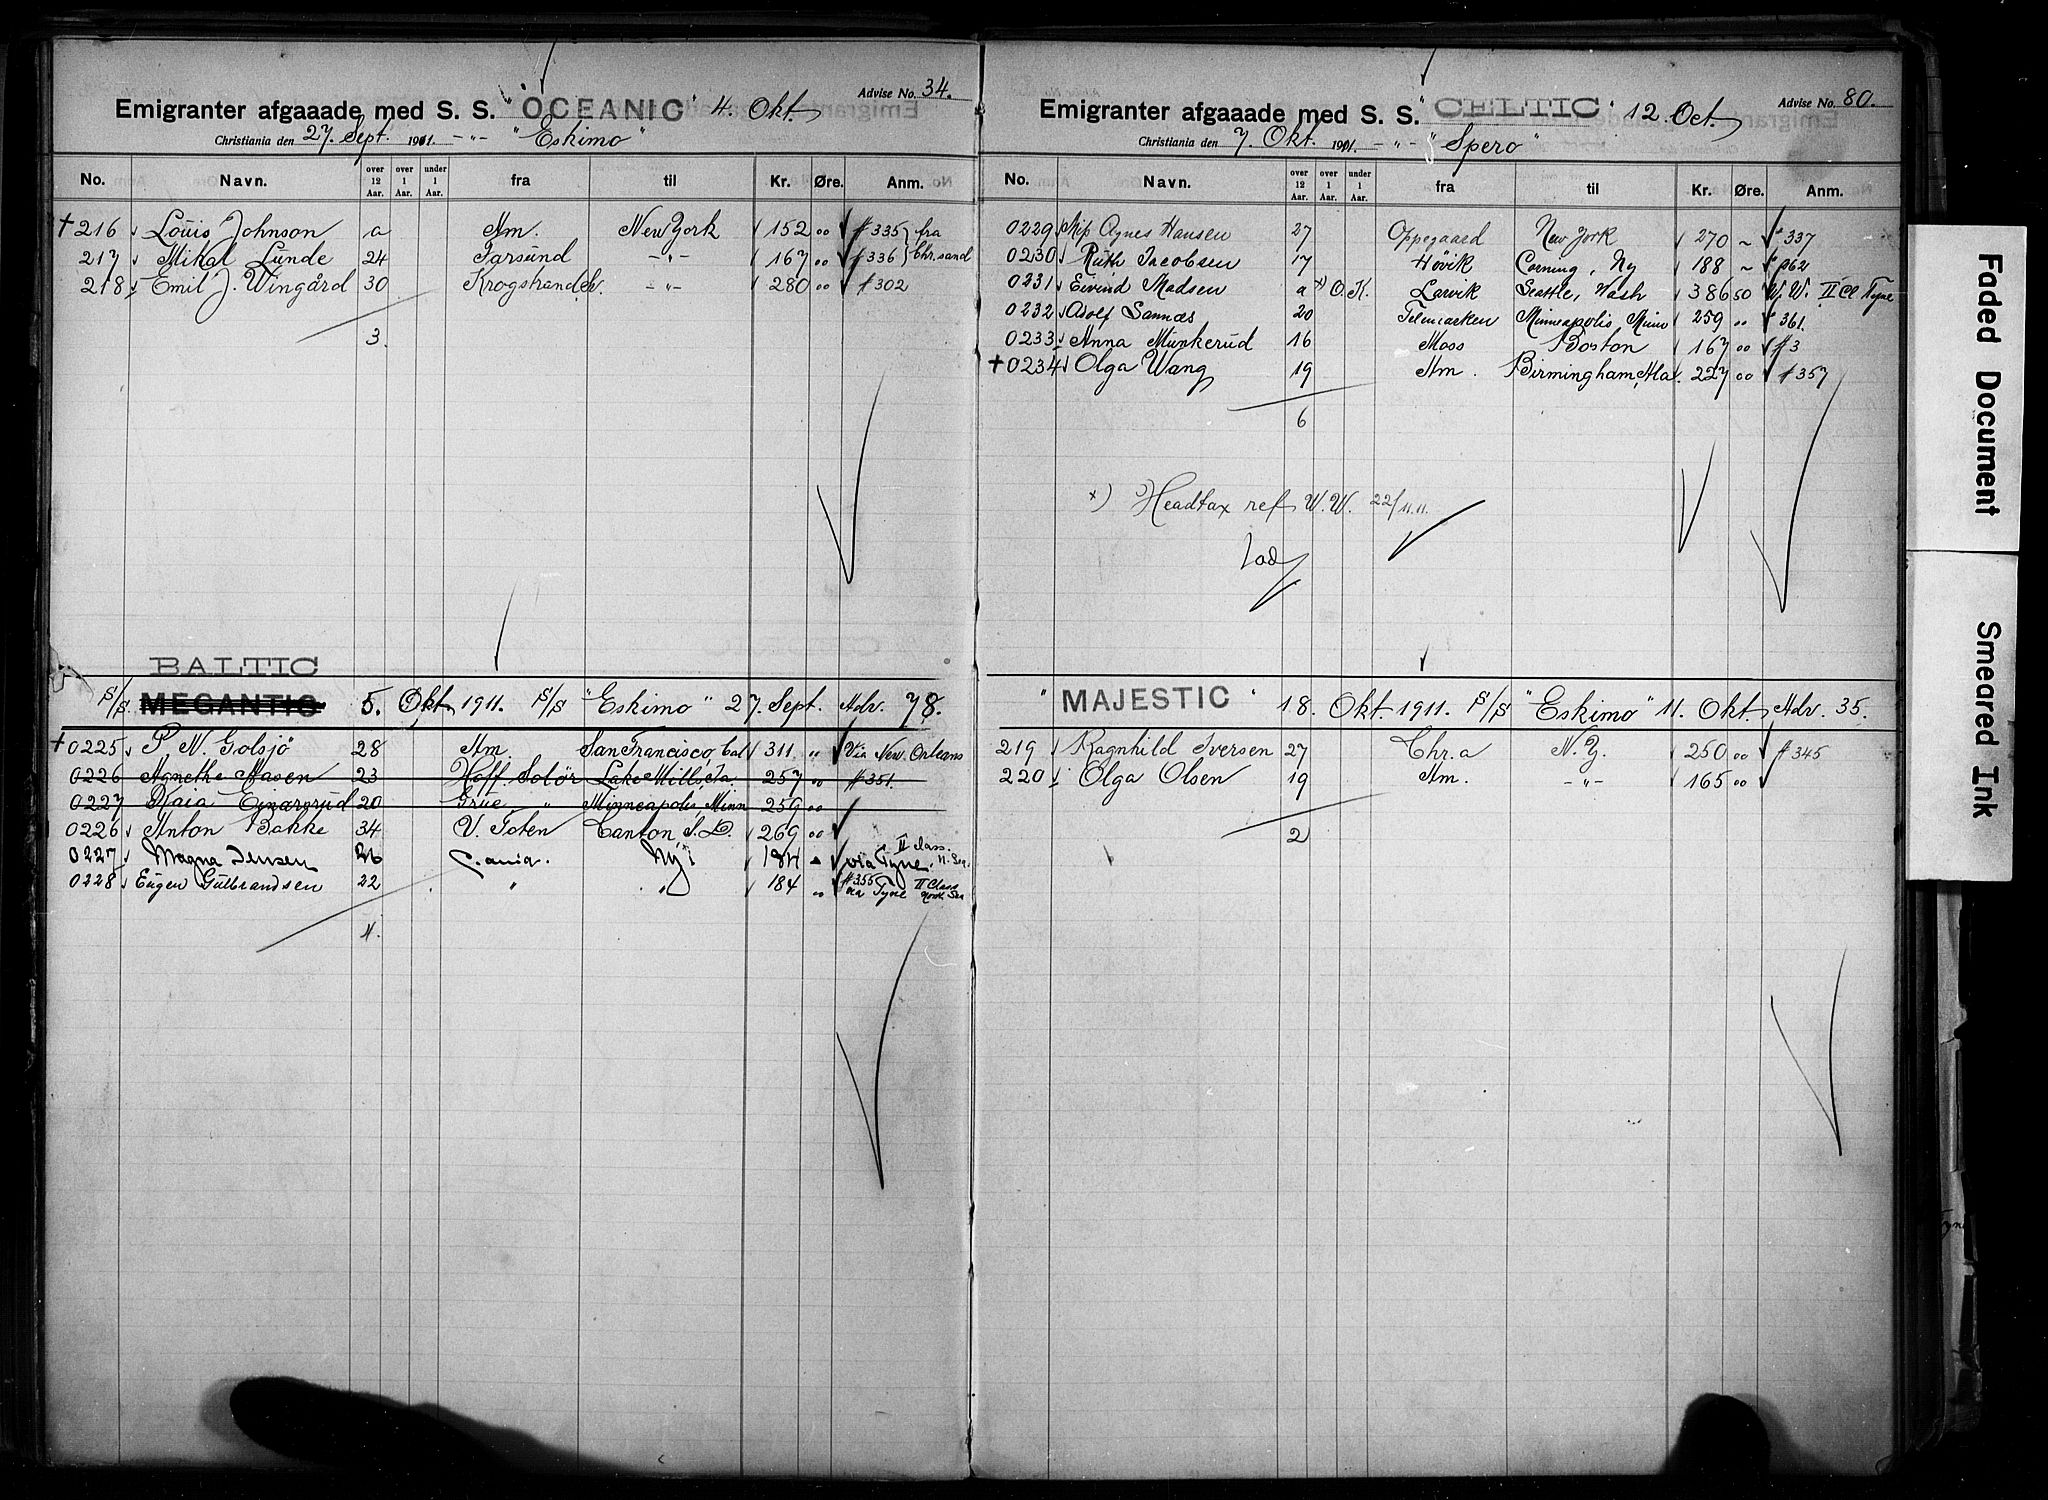 Advise No. 34.
Emigranter afgaaade med S. S. "OCEANIC" 4. Okt.
Christiania den 27. Sept. 1911. -"- "Eskimo"
No. Navn. over 12 Aar. over 1 Aar. under 1 Aar. fra til Kr. Øre. Anm.
+ 216 Louis Johnson a Am. New York 152 00 # 335 } fra
217 Mikal Lunde 24 Farsund -"- 167 00 # 336 } Chr.sand
218 Emil J. Wingård 30 Krogstrand -"- 280 00 # 302
3.
BALTIC
S/S. MEGANTIC 5. Okt. 1911. S/S "Eskimo" 27. Sept. Adv. 78.
+ 0225 P. N. Golsjö 28 Am. San Francisco, Cal 311 " Via New Orleans
0226 Agnethe Aasen 23 Hoff. Solör Lake Mills, Ia. 257 00 # 351.
0227 Einarsrud 20 Grue " Minneapolis, Minn 259 00
0226 Anton Bakke 34 V. Toten Canton S. D. 269 00
0227 Magna Jensen 26 C.ania. Ny 184 via Tyne. II class. N. Sea.
0228 Eugen Gulbrandsen 22 " " 184 00 # 355 II Class
via Tyne North Sea
4.
Advise No. 80.
Emigranter afgaaade med S. S. "CELTIC" 12. Oct.
Christiania den 7. Okt. 1911. -"- "Spero"
No. Navn. over 12 Aar. over 1 Aar. under 1 Aar. fra til Kr. Øre. Anm.
0229 Agnes Hansen 27 Oppegaard New York 270 ~ # 337
0230 Ruth Jacobsen 17 Hövik Corning, Ny 188 ~ # 362
0231 Eivind Madsen a x) O. K. Larvik Seattle, Wash 386 50 W. W. II Cl Tyne
0232 Adolf Sannæs 20 Telemarken Minneapolis Minn 259 00 # 361.
0233 Anna Munkerud 16 Moss Boston 167 00 # 3
+ 0234 Olga Wang 19 Am. Birmingham, Ala. 227 00 # 357
6
x) Headtax ref W. W. 22/11.11.
"MAJESTIC" 18. Okt. 1911. S/S "Eskimo" 11. Okt. Adv. 35.
219 Ragnhild Iversen 27 Chr.a N. Y. 250 00 # 345
220 Olga Olsen 19 Am. -"- 165 00
2
Faded Document
Smeared Ink